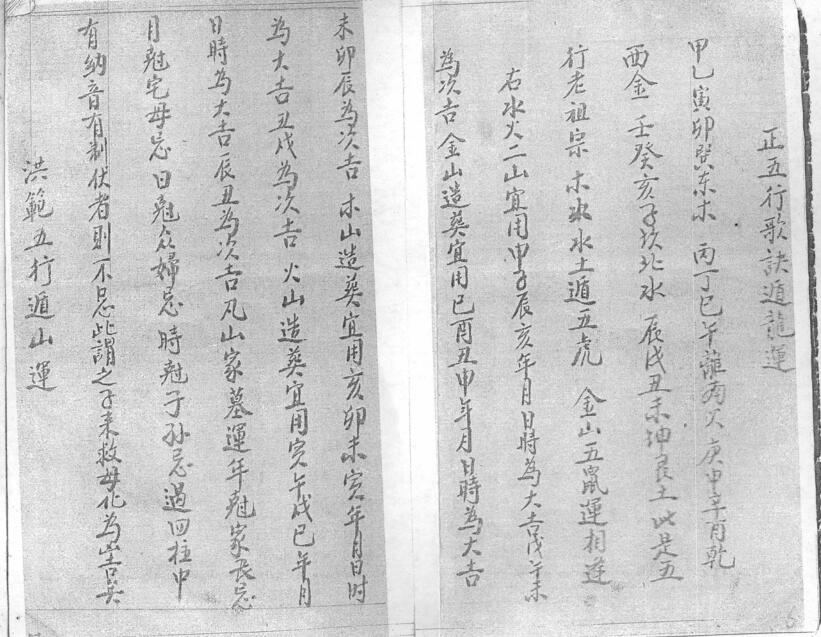 正五行歌訣遁龍運
甲乙寅卯巽东木 丙丁巳午離南火 庚申辛酉乾
西金 壬癸亥子坎北水 辰戌丑未坤艮土 此是五
行老祖宗 木水水土遁五虎 金山五鼠運相逢
右水火二山宜用申子辰亥年月日時為大吉戌午未
為次吉 金山造葬宜用巳酉丑申年月日時為大吉
未卯辰為次吉 木山造葬宜用亥卯未寅年月日时
為大吉丑戌為次吉 火山造葬宜用寅午戌巳年月
日時為大吉辰丑為次吉凡山家墓運年尅家長忌
月尅宅母忌日尅众婦忌 時尅子孙忌過四柱中
有納音有制伏者則不忌此謂之子来救母化為
洪範五行遁山運
6